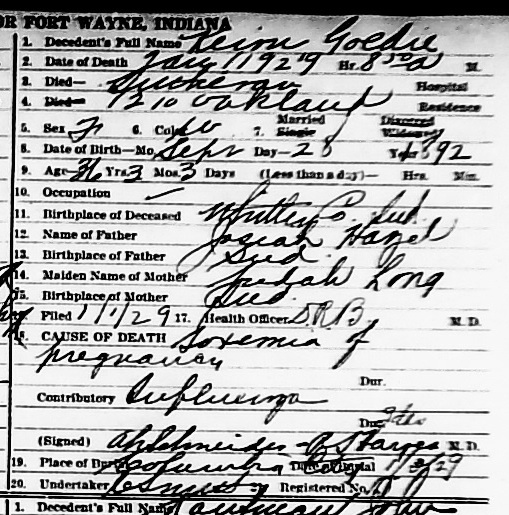 OR FORT WAYNE, INDIANA
1. Decedent's Full Name Keirn Goldie
2. Date of Death Jan 1 1929 Hr. 8 50 a M.
3. Died— Lutheran Hospital
4. Died— 1210 Oakland Residence
5. Sex F 6. Col. W 7. Married Single Divorced Widowed
8. Date of Birth—Mo. Sept Day—28 Year 1892
9. Age 36 Yrs. 3 Mos. 3 Days (Less than a day)— Hrs. Min.
10. Occupation
11. Birthplace of Deceased Whitley Co. Ind.
12. Name of Father Josiah Hazel
13. Birthplace of Father Ind
14. Maiden Name of Mother Judah Long
15. Birthplace of Mother Ind
Filed 1/1/29 17. Health Officer D.R.B. M. D.
18. CAUSE OF DEATH Toxemia of
pregnancy
Dur.
Contributory Influenza
Dur.
(Signed) M. D.
19. Place of Burial Columbia City Date of Burial 1/3/29
20. Undertaker Registered No.
1. Decedent's Full Name